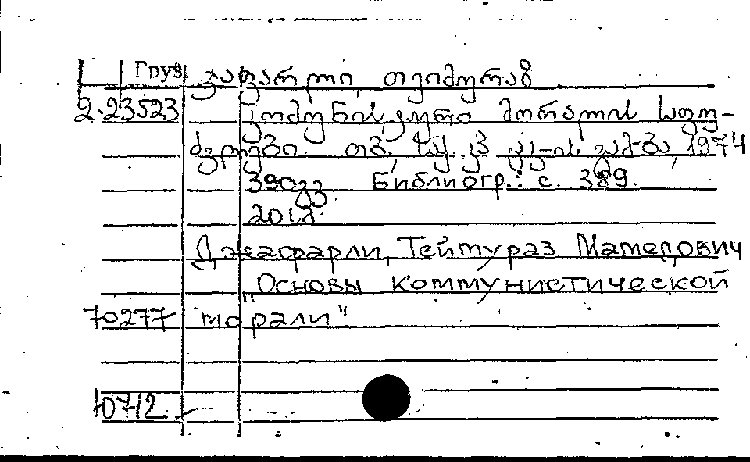 Груз ჯაფარლი, თეიმურაზ
2.23523 კომუნისტური მორალის საფუ-
ძვლები. თბ., საქ. კპ ცკ-ის გამ-ბა, 1974
390 გვ. Библиогр.: с. 389.
Джафарли, Теймураз Мамедович
"Основы коммунистической
70277 морали"
10712